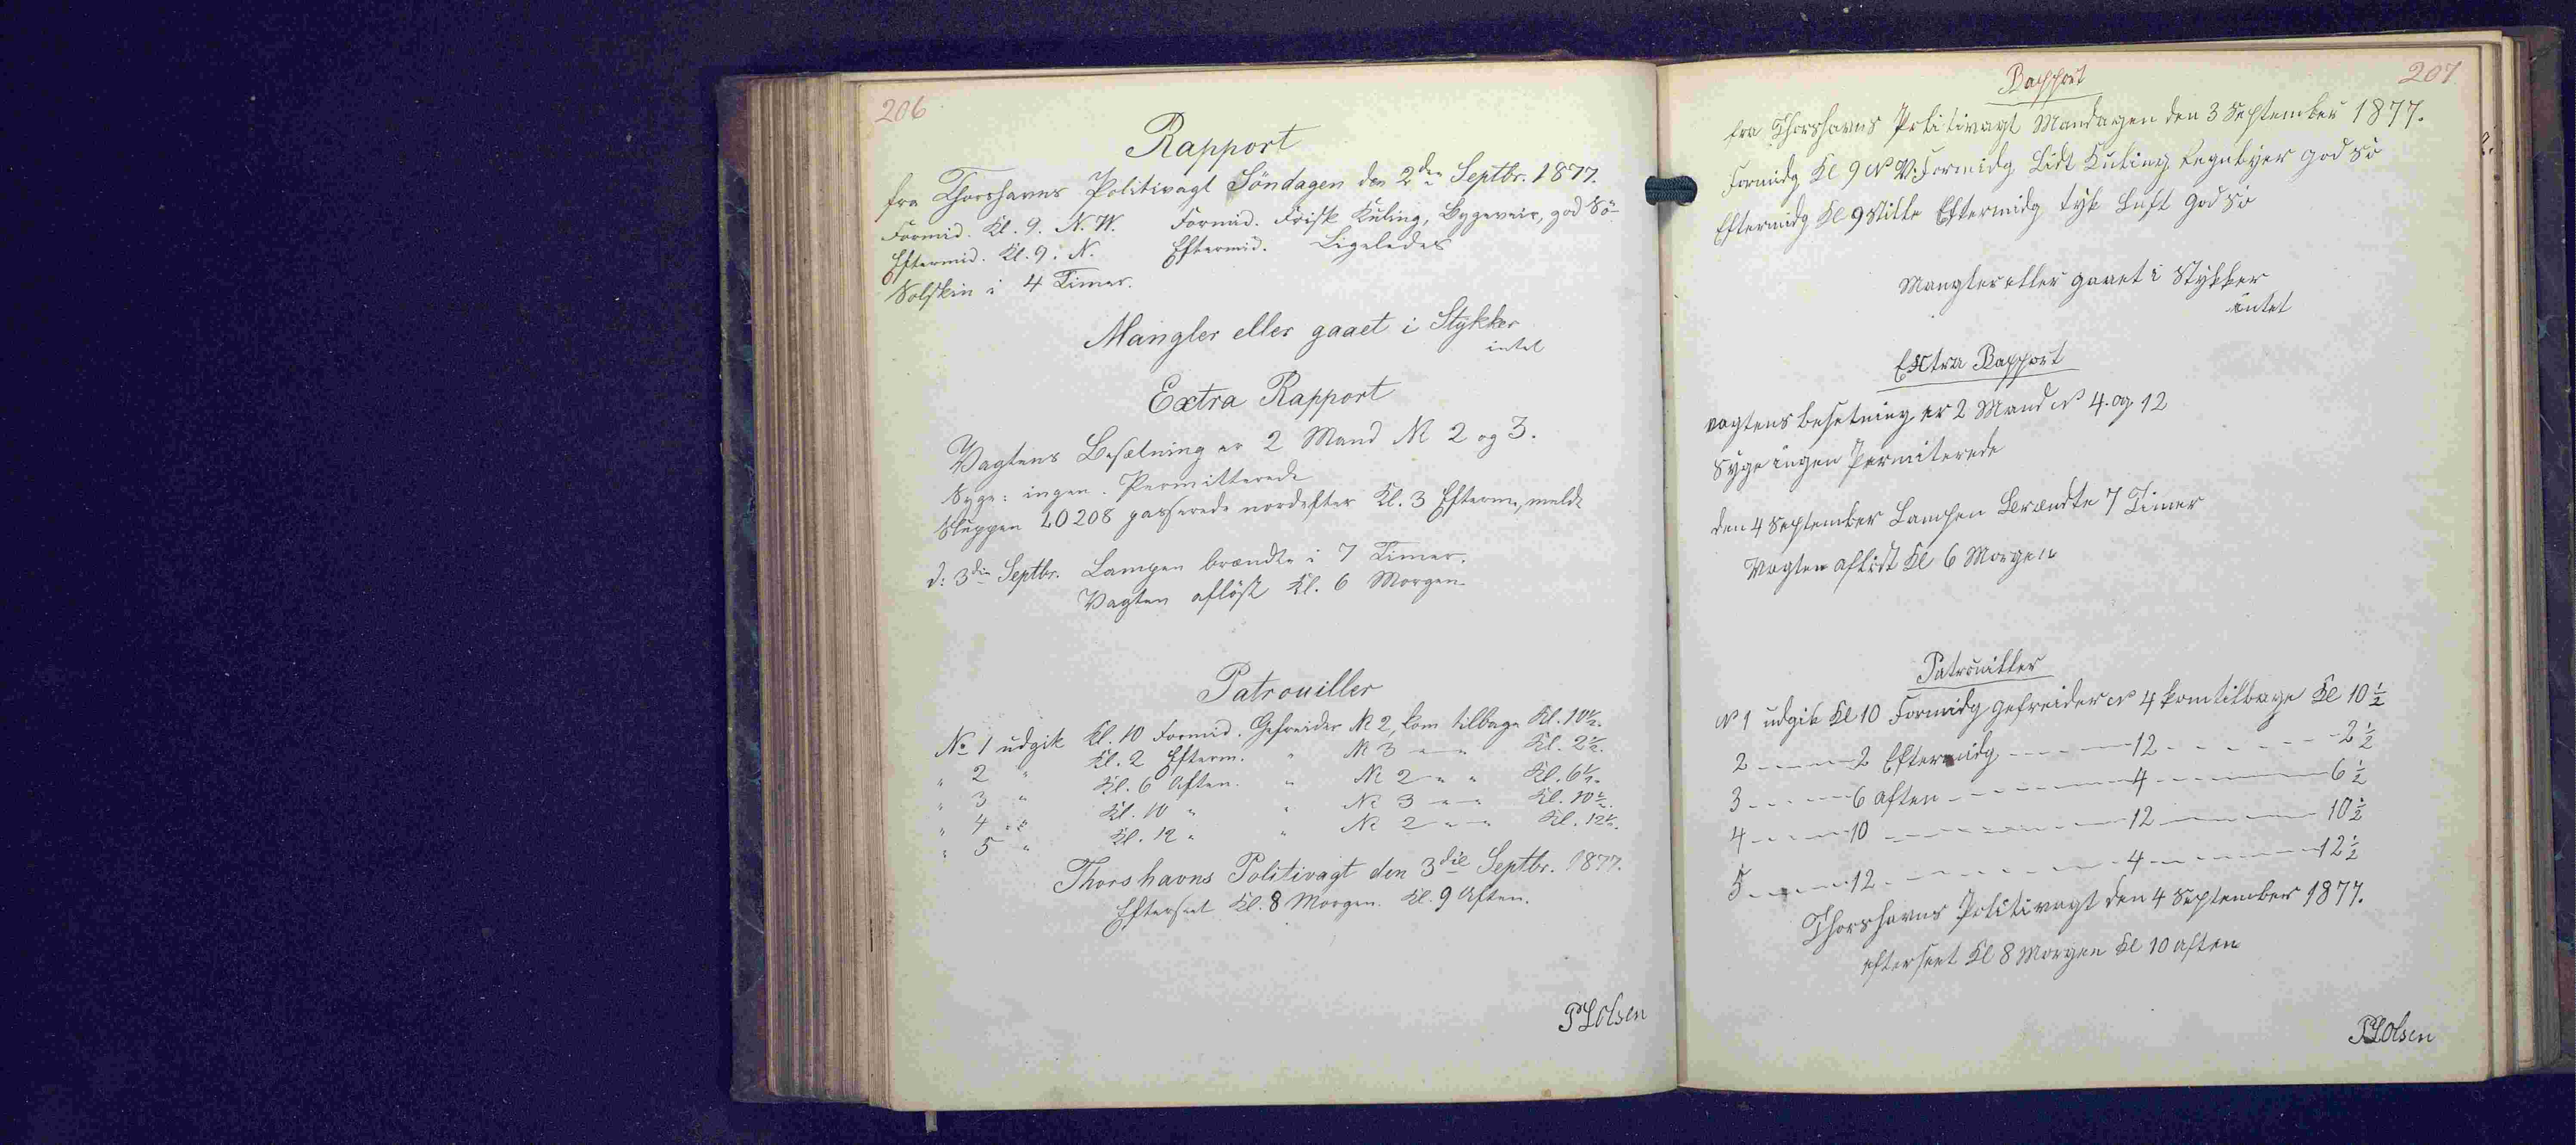 206
Rapport
fra Thorshavns Politivagt Söndagen den 2den Septbr. 1877.
Formid. Kl. 9. N.W. Formid. Frisk Kuling, Bygeveir, god Sö
Eftermid. Kl. 9. N. Eftermid. Ligeledes
Solskin i 4 Timer.
Mangler eller gaaet i Stykker
intet
Extra Rapport
Vagtens Besætning er 2 Mand No 2 og 3.
Syge: ingen. Permitterede
Sluppen 20208 passerede nordefter Kl. 3 Efterm,
d: 3die Septbr. Lampen brændte i 7 Timer.
Vagten aflöst Kl. 6 Morgen
Patrouiller
No 1 udgik Kl. 10 Formid. Gefreider No 2, kom tilbage Kl. 10½.
" 2 " Kl. 2 Efterm. " No 3 " " Kl. 2½.
" 3 " Kl. 6 Aften. " No 2 " " Kl. 6½.
" 4 " Kl. 10 " " No 3 " " Kl. 10½.
" 5 " Kl. 12 " " No 2 " " Kl. 12½.
Thorshavns Politivagt den 3die Septbr. 1877.
Efterseet Kl. 8 Morgen. Kl. 9 Aften.
PLOlsen
207
Rapport
fra Thorshavns Politivagt Mandagen den 3 September 1877.
Formidg Kl 9 N V. Formidg Lidt Kuling Regnbyer god Sö
Eftermidg Kl 9 Stille Eftermidg tyk Luft god Sö
Mangler eller gaaet i Stykker
intet
Extra Rapport
vagtens besetning er 2 Mand No 4. og 12
Syge ingen Permiterede
den 4 September Lampen Brændte 7 Timer
Vagten aflöst Kl 6 Morgen
Patrouiller
No 1 udgik Kl 10 Formidg gefreider No 4 kom tilbage Kl 10½
2 - - - - 2 Eftermidg - - - - 12 - - - - - 2½
3 - - - - 6 aften - - - - 4 - - - - - 6½
4 - - - - 10 - - - - - - 12 - - - - - 10½
5 - - - - 12 - - - - - - 4 - - - - - 12½
Thorshavns Politivagt den 4 September 1877.
efterseet Kl 8 Morgen Kl 10 aften
PLOlsen